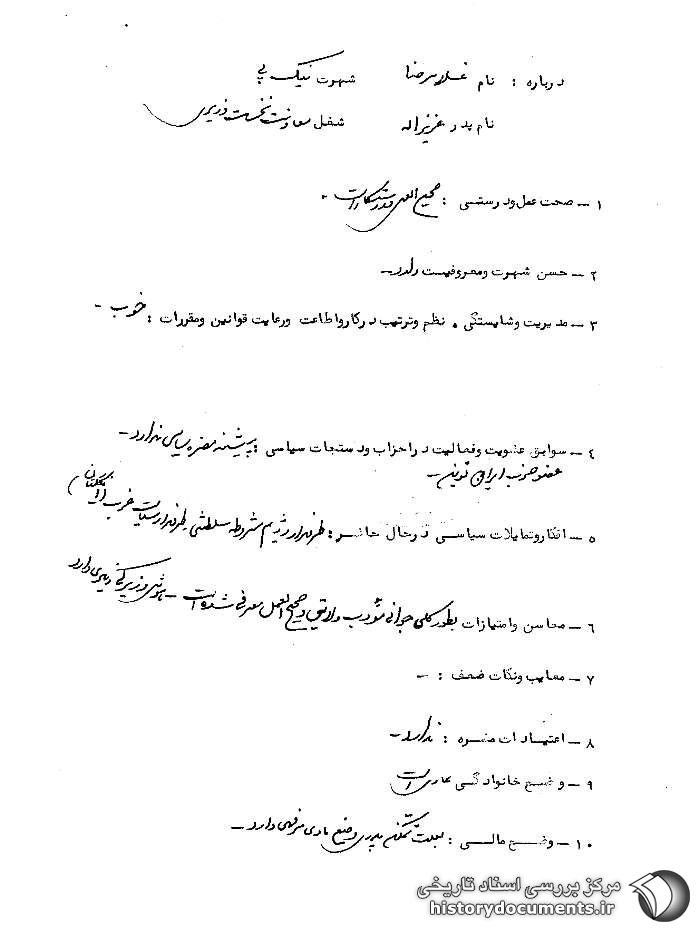 درباره : نام غلامرضا شهرت نیک پی
نام پدر عزیزاله شغل معاونت نخست وزیری
۱ – صحت عمل ودرستی : صحیح العمل ودرستکار است .
۲ – حسن شهرت ومعروفیت دارد–
۳ – مدیریت وشایستگی . نظم وترتیب درکارواطاعت ورعایت قوانین ومقررات : خوب –
۴ – سوابق عضویت وفعالیت دراحزاب ودستجات سیاسی : پیشینه مضره سیاسی ندارد –
عضو حزب ایران نوین –
۵ – افکاروتمایلات سیاسی درحال حاضر : طرفدار رژیم مشروطه سلطنتی طرفدار سیاست غرب (انگلستان)
۶ – محاسن وامتیازات بطور کلی جوانی مؤدب و لایق و صحیح العمل معرفی شده است – هوش و زیرکی دارد
۷ – معایب ونکات ضعف : –
۸ – اعتیادات مضره : ندارد –
۹ – وضع خانوادگی عادی است
۱۰ – وضع مالی : بعلت تمکن پدری وضع مادی مرفهی دارد –
مرکز بررسی اسناد تاریخی
historydocuments.ir